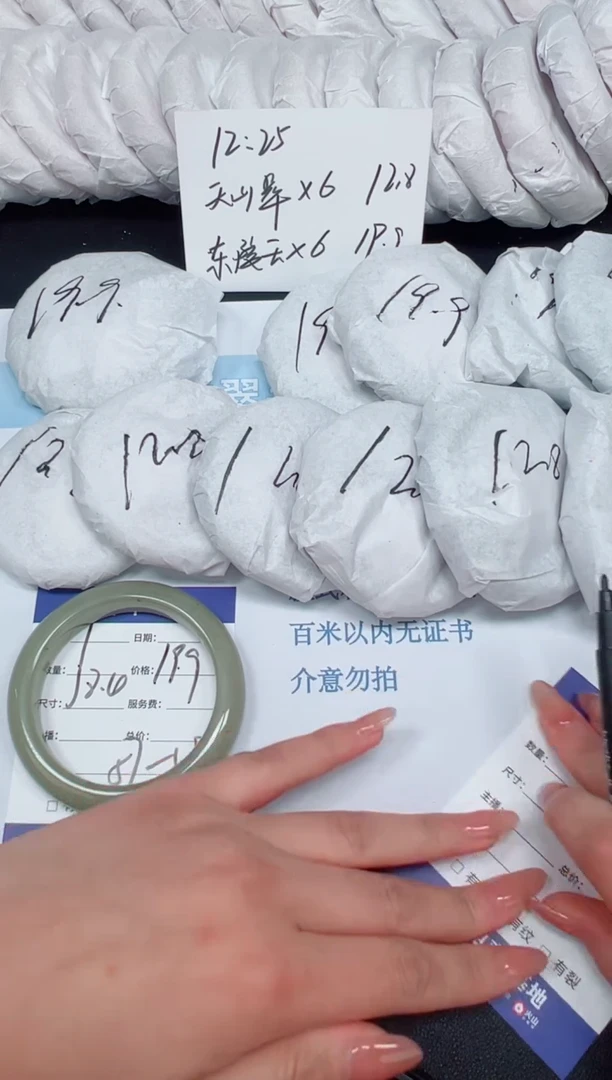 12:25
天山翠×6 12.8
东陵玉×6 19.9
19.9
19
19.9
翠
12.8
12
12.8
百米以内无证书
介意勿拍
日期:
数量: 1 价格: 19.9
尺寸: 58.6 服务费:
播: 总价:
数量:
尺寸:
主播:
总价:
有纹 有裂
地
火山